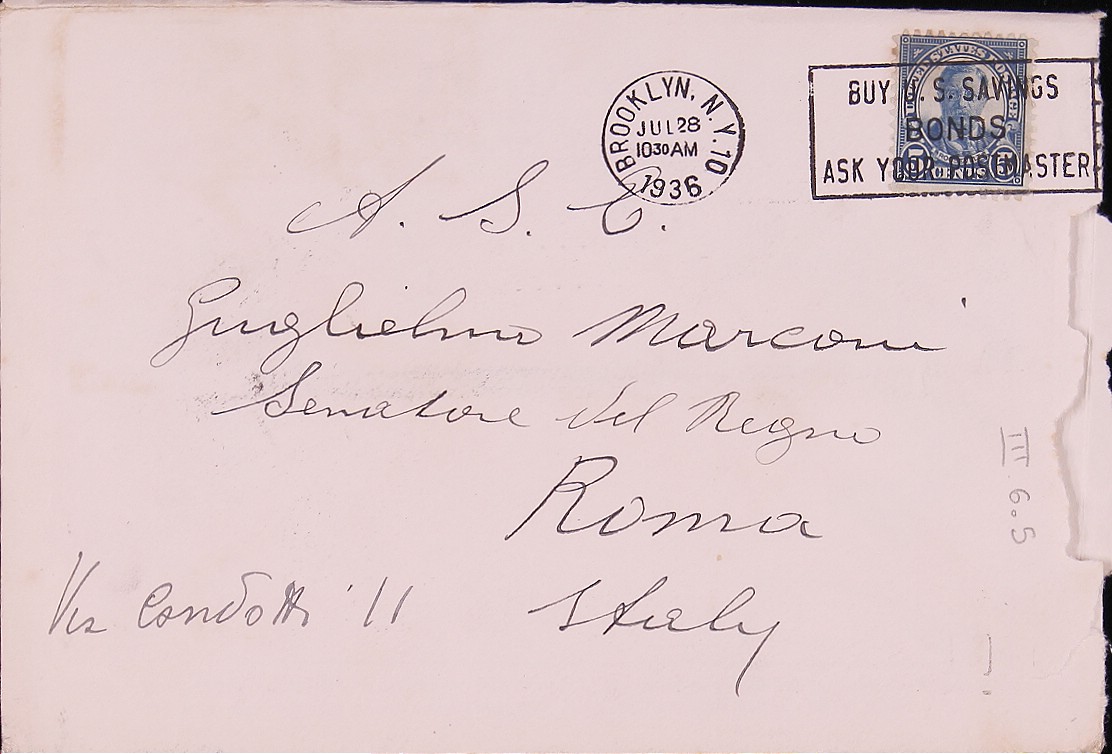 BROOKLYN, N.Y. 10
JUL 28
10 30 AM
1936
BUY U.S. SAVINGS
BONDS
ASK YOUR POSTMASTER
A. S. E.
Guglielmo Marconi
Senatore del Regno
Roma
Via Condotti 11
Italy
III 6.5